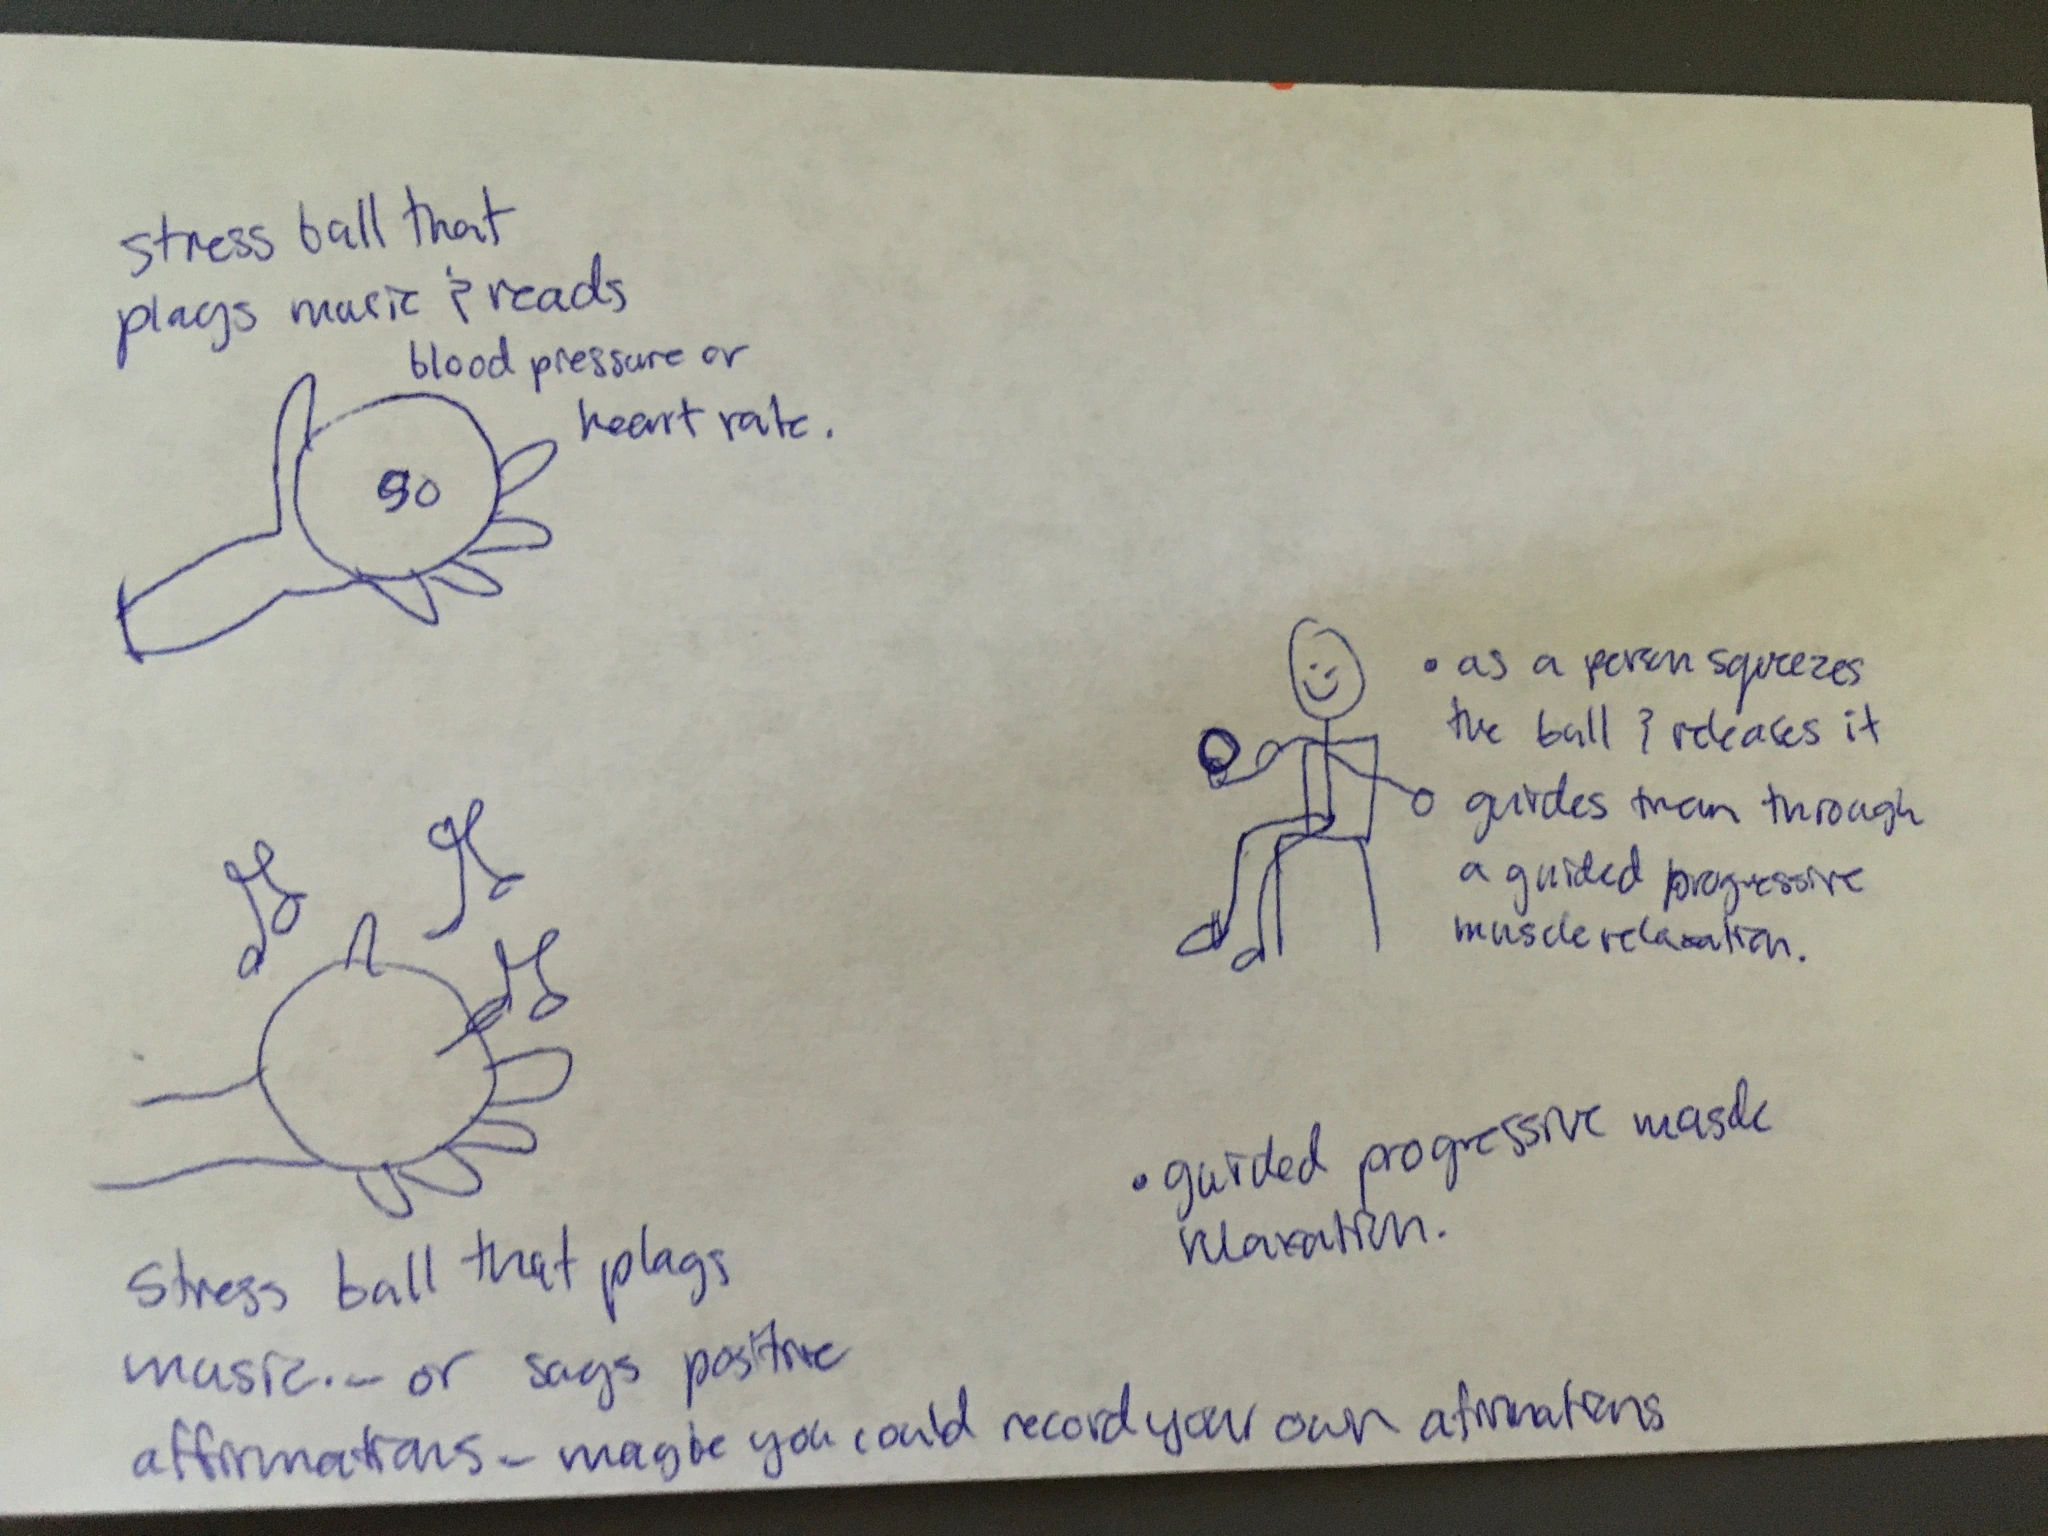 stress ball that
plays music & reads
blood pressure or
heart rate.
90
• as a person squeezes
the ball & releases it
guides them through
a guided progressive
muscle relaxation.
• guided progressive muscle
relaxation.
Stress ball that plays
music... or says positive
affirmations - maybe you could record your own afirmations